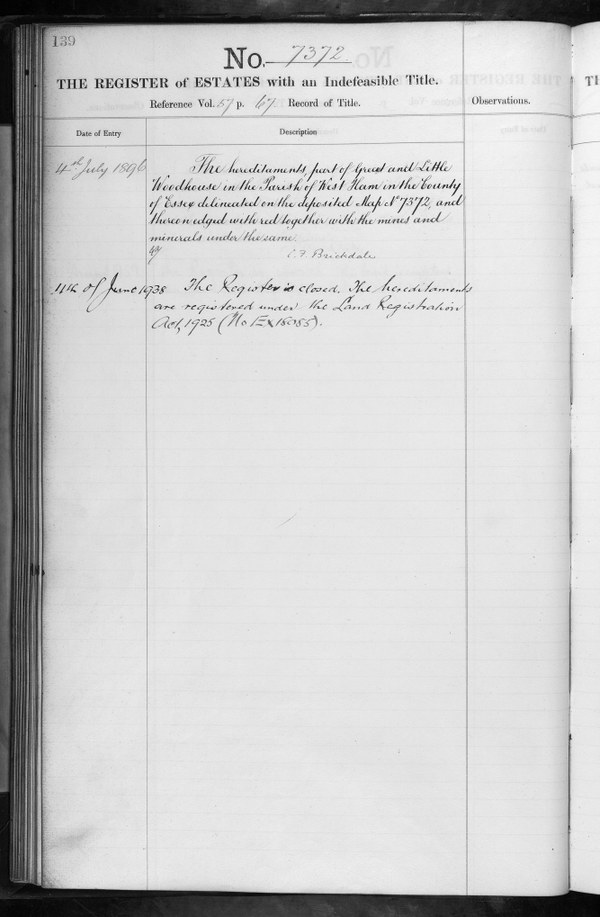 139
No. 7372
THE REGISTER of ESTATES with an Indefeasible Title.
Reference Vol. 57 p. 67 Record of Title.
Observations.
Date of Entry
Description
4th July 1896
The hereditaments, part of Great and Little
Woodhouse in the Parish of West Ham in the County
of Essex delineated on the deposited Map No 7372, and
thereon edged with red together with the mines and
minerals under the same.
C. F. Brickdale
4th of June 1938
The Register is closed. The hereditaments
are registered under the Land Registration
Act, 1925 (No Ex 18085).
TH